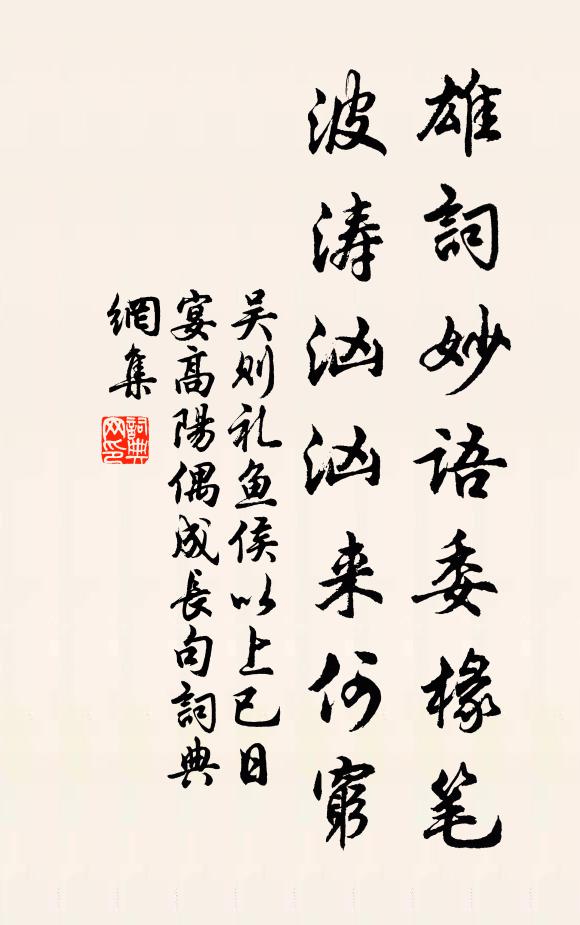 雄詞妙語委椽笔
波涛汹汹来何窮
吴则礼鱼侯以上巳日
宴高陽偶成長句詞典
網集
詞典
网印